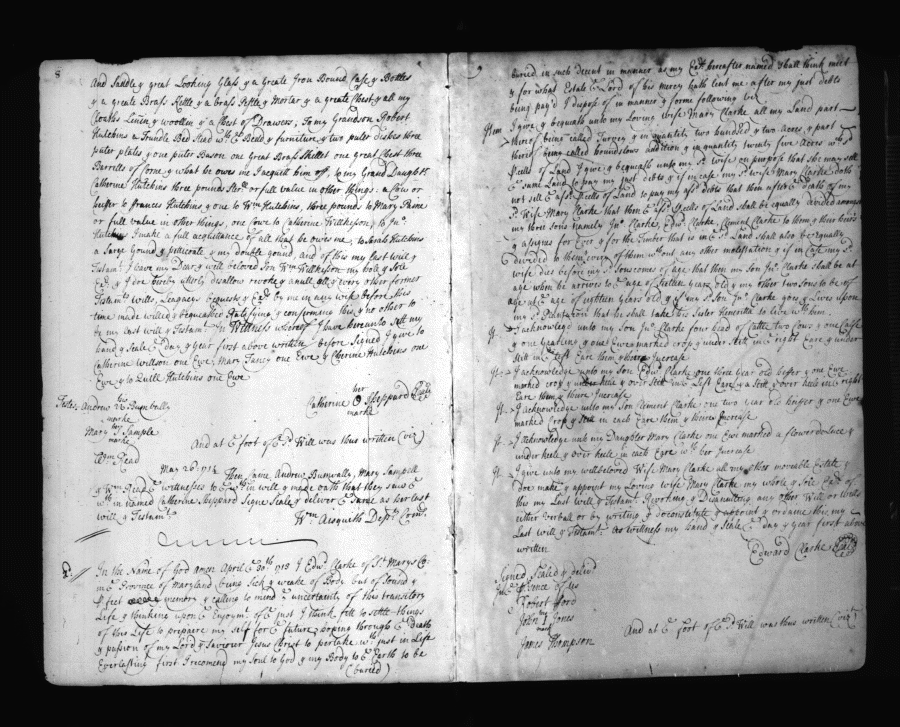 8
And Saddle y great Looking Glass y a Greate Iron Bound Case y Bottles
y a greate Brass Kettle y a brass Kettle y Mortar y a greate Chest y all my
Cloaths Linnin y woollen y a Chest of Drawers, To my Grandson Robert
Hutchins a Trundle Bed Stead wth ye Bead y furniture y two puter dishes three
puter plates y one puter Bason one Great Brass Skellet one great Chest three
Barrells of Corne y what he owes me I acquitt him off, to my Grand Daughtr
Catherine Hutchins three pounds Sterl or full value in other things: a Cow or
heifer to Frances Hutchins y one to Wm Hutchins, three pounds to Mary Paine
or full value in other things, one Ewe to Catherine Wilkieson, to Jno
Hutchins I make a full acquittance of all that he owes me, to Sarah Hutchins
a Sarge Gound y petticoate y my double Gound, And of this my last will y
Testamt I have my Dear y well beloved Son Wm Wilkieson my hole y Sole
Exr y I doe hereby utterly disallow revoke y anull all y every other former
Testamts wills, Leagacys bequests y Exrs by me in any wise before this
time made willed y bequeathed Ratefying y confirming this y no other to
be my last will y Testamt In Wittness whereof I have hereunto Sett my
hand y Seale ye day y year first above written before Signed I give to
Catherine Willson one Ewe, Mary Taney one Ewe y Catherine Hutchins one
Ewe y to Zulle Hutchins one Ewe
Testes, Andrew his Bumbally
marke
Mary her Sample
marke
Wm Read
Catherine her O Sheppard Seale
marke
And at ye foot of ye sd Will was thus written (viz)
May 26 1714 Then Came Andrew Bumvally, Mary Sampell
y Wm Read ye wittnesses to ye wthin will y made oath that they saw ye
wthin named Catherine Sheppard Signe Seale y deliver ye Same as her last
will y Testamt
Wm Aisquith Depty Comr
In the Name of God Amen April ye 30th 1713 I Edwd Clarke of St Marys Co
in ye Province of Maryland being Sick y weake of Body but of Sound y
pfect memory y calling to mind ye uncertainty of this transitory
Life y thinking upon ye Enjoymt of ye just I think fitt to settle things
of this Life to prepare my self for ye future hoping through ye Death
y passion of my Lord y Saviour Jesus Christ to pertake wth just in Life
Everlasting first I recomeng my Soul to God y my Body to ye Earth to be
(buried)
9
buried in such decent in manner as my Exts hereafter named Shall think meet
y for what Estate ye Lord of his mercy hath lent me after my just debts
being pay'd I dispose of in manner y forme following viz
Item I give y bequeath unto my Loving wife Mary Clarke all my Land part
thereof being called Turvey y in quantity two hundred y two Acres y part
thereof being called houndslows addition y in quantity twenty five Acres wch sd
Psells of Land I give y bequeath unto my sd wife on purpose that She may sell
ye same Land to pay my just debts y if in case my sd wife Mary Clarke doth
not sell ye aforesd Psells of Land to pay my aforesd debts that then after ye death of my
sd Wife Mary Clarke that then ye aforesd Psells of Land shall be equally devided amongst
my three sons namely Jno Clarke, Edwd Clarke Clement Clarke to them y their heirs
y assignes for Ever y for the Timber that is in ye sd Land shall also be equally
devided to them every of them without any other molestation y if in Case my sd
wife dies before my sd Sons comes of age that then my Son Jno Clarke shall be at
age when he arrives to ye age of Sixteen years old y my other two sons to be of
age at ye age of eighteen years old y if my sd Son Jno Clarke goes y Lives upon
my sd Plantation that he shall take his Sister Henrietta to Live wth him
It I acknowledge unto my Son Jno Clarke four head of Cattle two Cows y one Calfe
y one yearling y one Ewe marked crop y under slitt in ye right Eare y under
slitt in ye left Eare them y theire Increase
It I acknowledge unto my Son Edwd Clarke one three year old heifer y one Ewe
marked crop y under keele y over slitt in ye Left Eare y a Slitt y over keele in ye right
Eare them y theire Increase
It I acknowledge unto my Son Clement Clarke one two year old heifer y one Ewe
marked Crop y Slitt in each Eare them y theire Increase
It I acknowledge unto my Daughter Mary Clarke one Ewe marked a flower deluce y
under keele y over keele in each Eare wth her Increase
It I give unto my wellbeloved Wife Mary Clarke all my other moveable Estate y
I doe make y appoynt my Loving wife Mary Clarke my whole y Sole Exts of
this my Last will y Testamt Revoking y Disanulling any other Will or Wills
either Verball or by writing y doe constitute y appoint y ordaine this my
Last will y Testamt As wittness my hand y Seale ye day y year first above
written
Edward Clarke Seale
Signed Sealed y delivd
in ye psence of us
Robert Ford
John his I Jones
mark
James Thompson
And at ye foot of ye sd Will was thus written (viz)